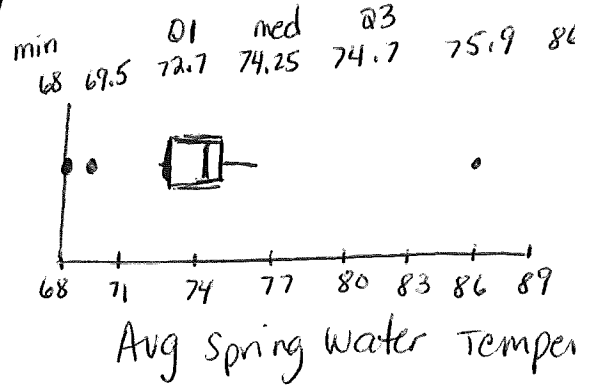 min Q1 med Q3
68 69.5 72.7 74.25 74.7 75.9 86
68 71 74 77 80 83 86 89
Avg Spring Water Temper